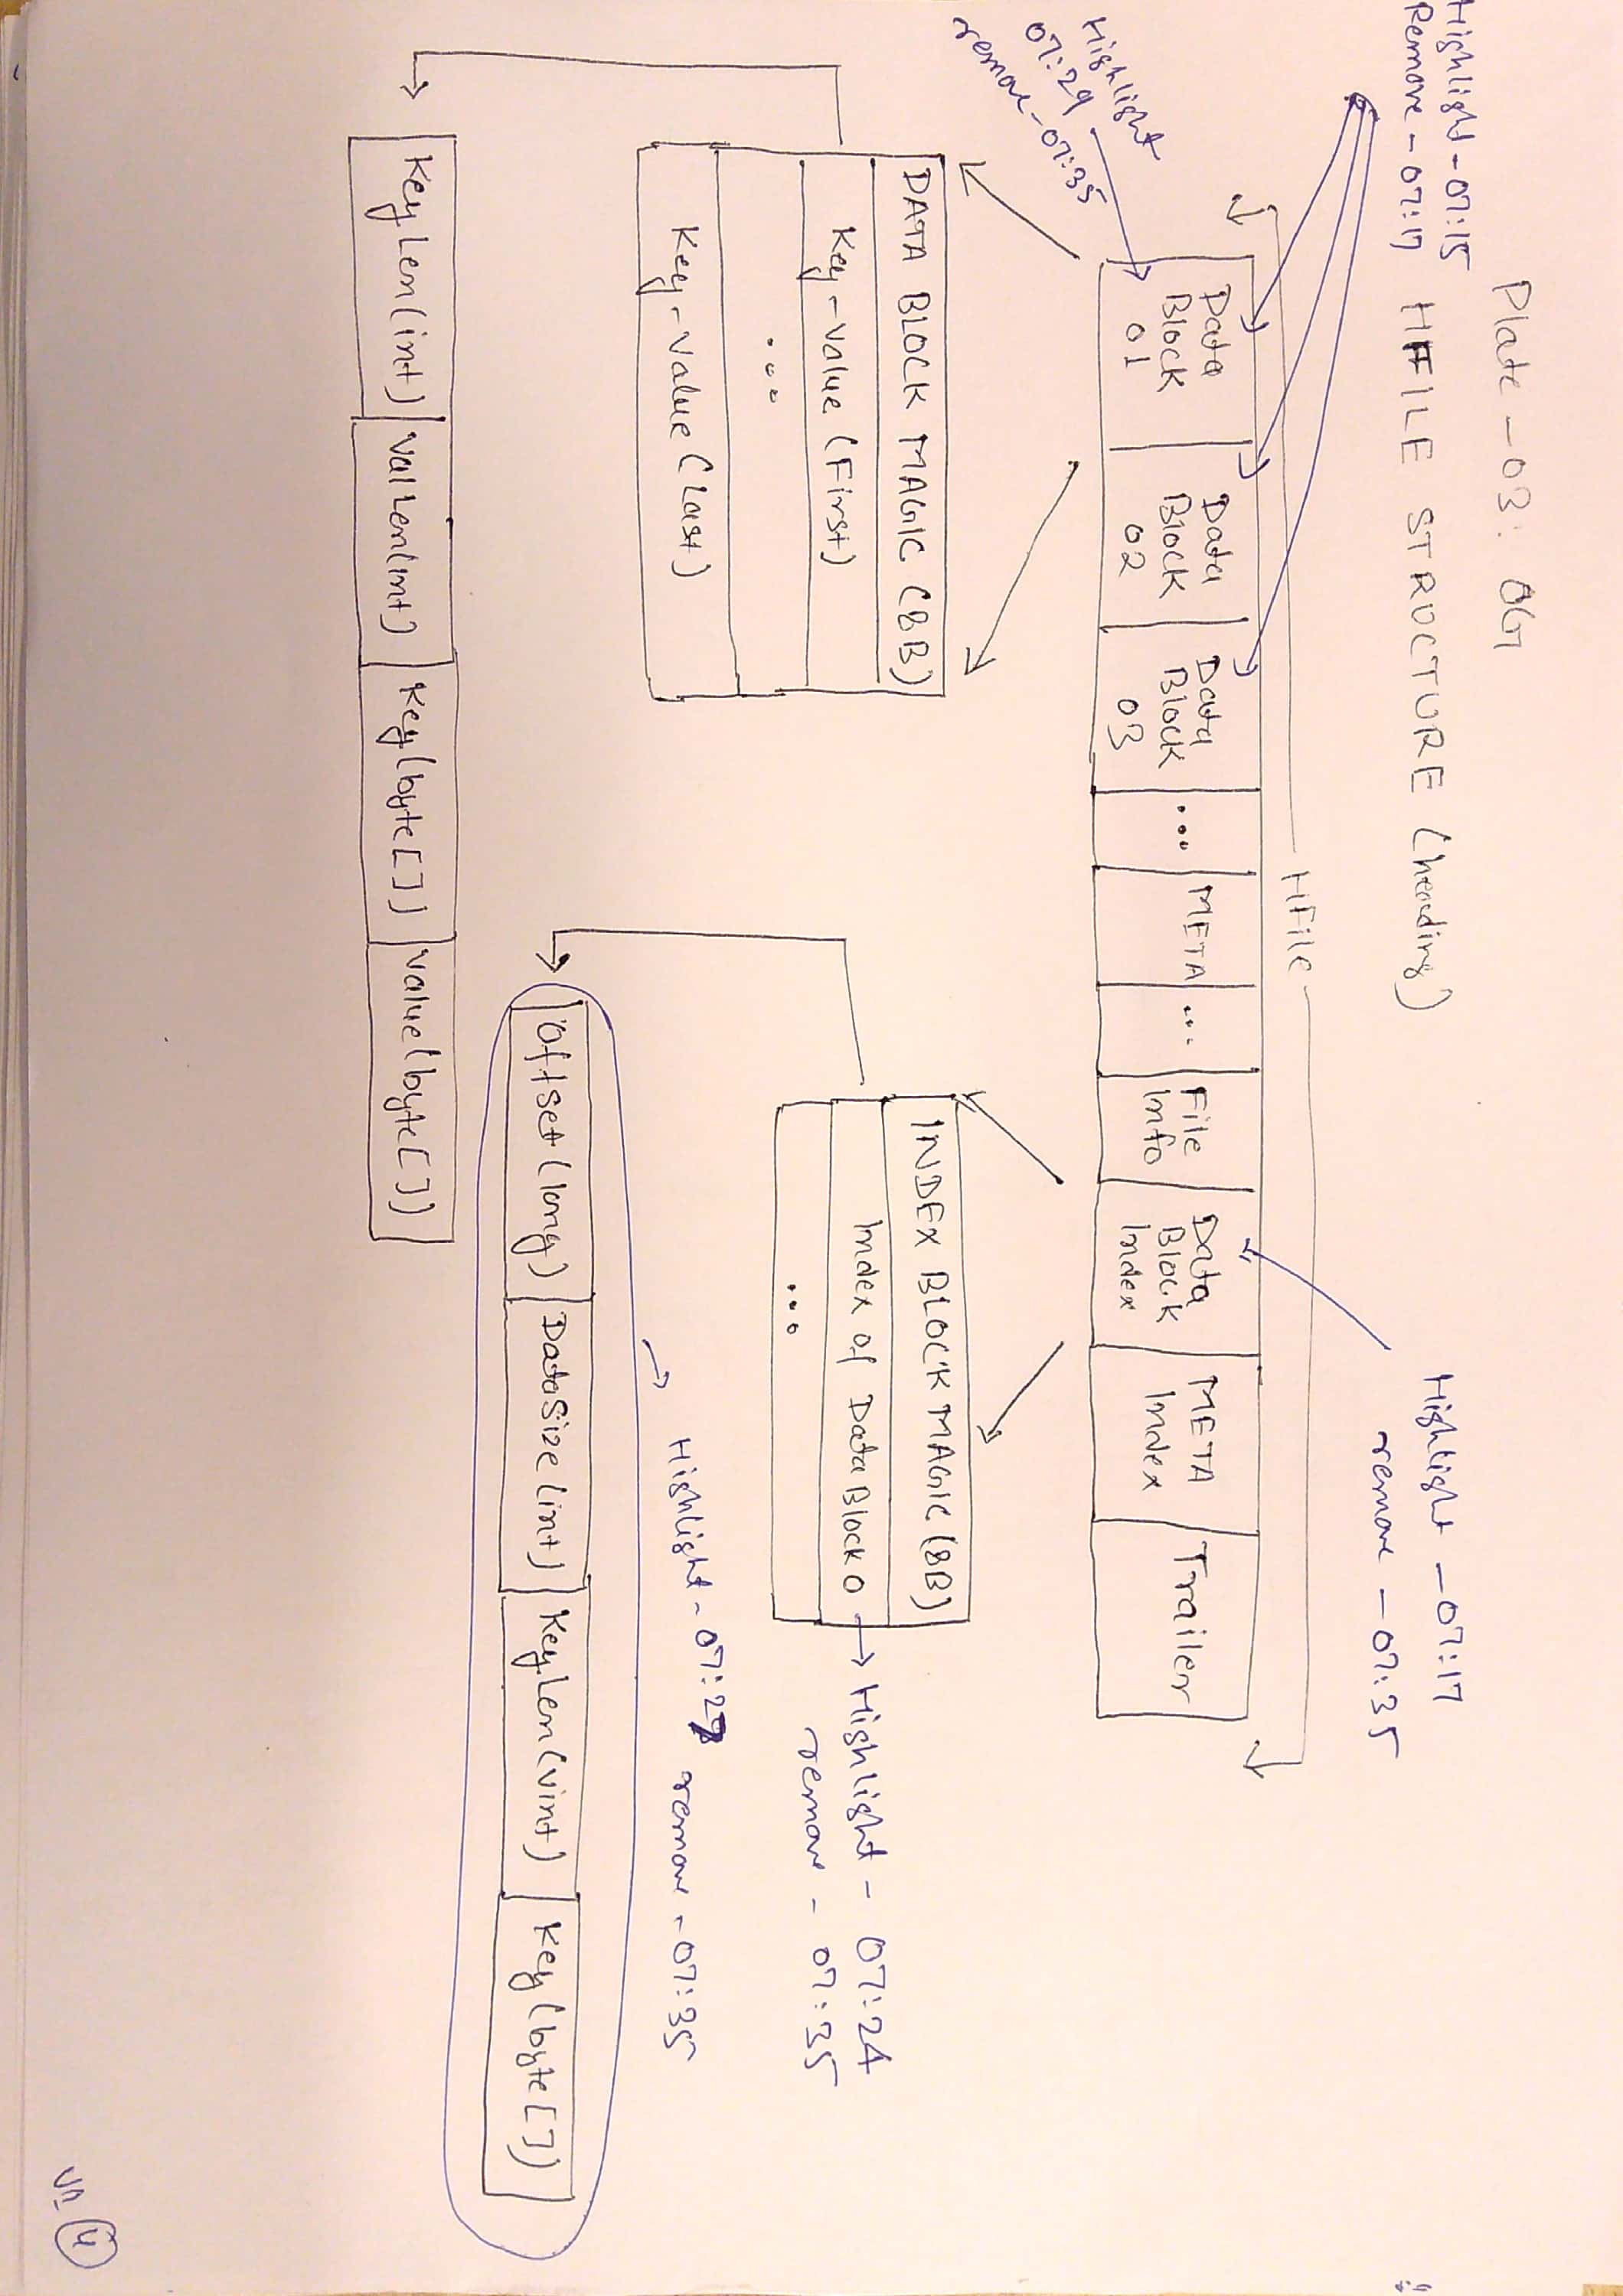 Plate - 03: OG
Highlight - 07:15
Remove - 07:17
HFILE STRUCTURE (heading)
Highlight - 07:17
remove - 07:35
HFile
Data
Block
01
Data
Block
02
Data
Block
03
...
META
...
File
Info
Data
Block
Index
META
Index
Trailer
Highlight
07:29
remove - 07:35
DATA BLOCK MAGIC (8B)
Key-Value (First)
...
Key-Value (Last)
INDEX BLOCK MAGIC (8B)
Index of Data Block 0
...
Highlight - 07:24
remove - 07:35
Highlight - 07:27 remove - 07:35
Offset (long) DataSize (int) KeyLen (vint) Key (byte[])
KeyLen (int) ValLen (int) Key (byte[]) Value (byte[])
4